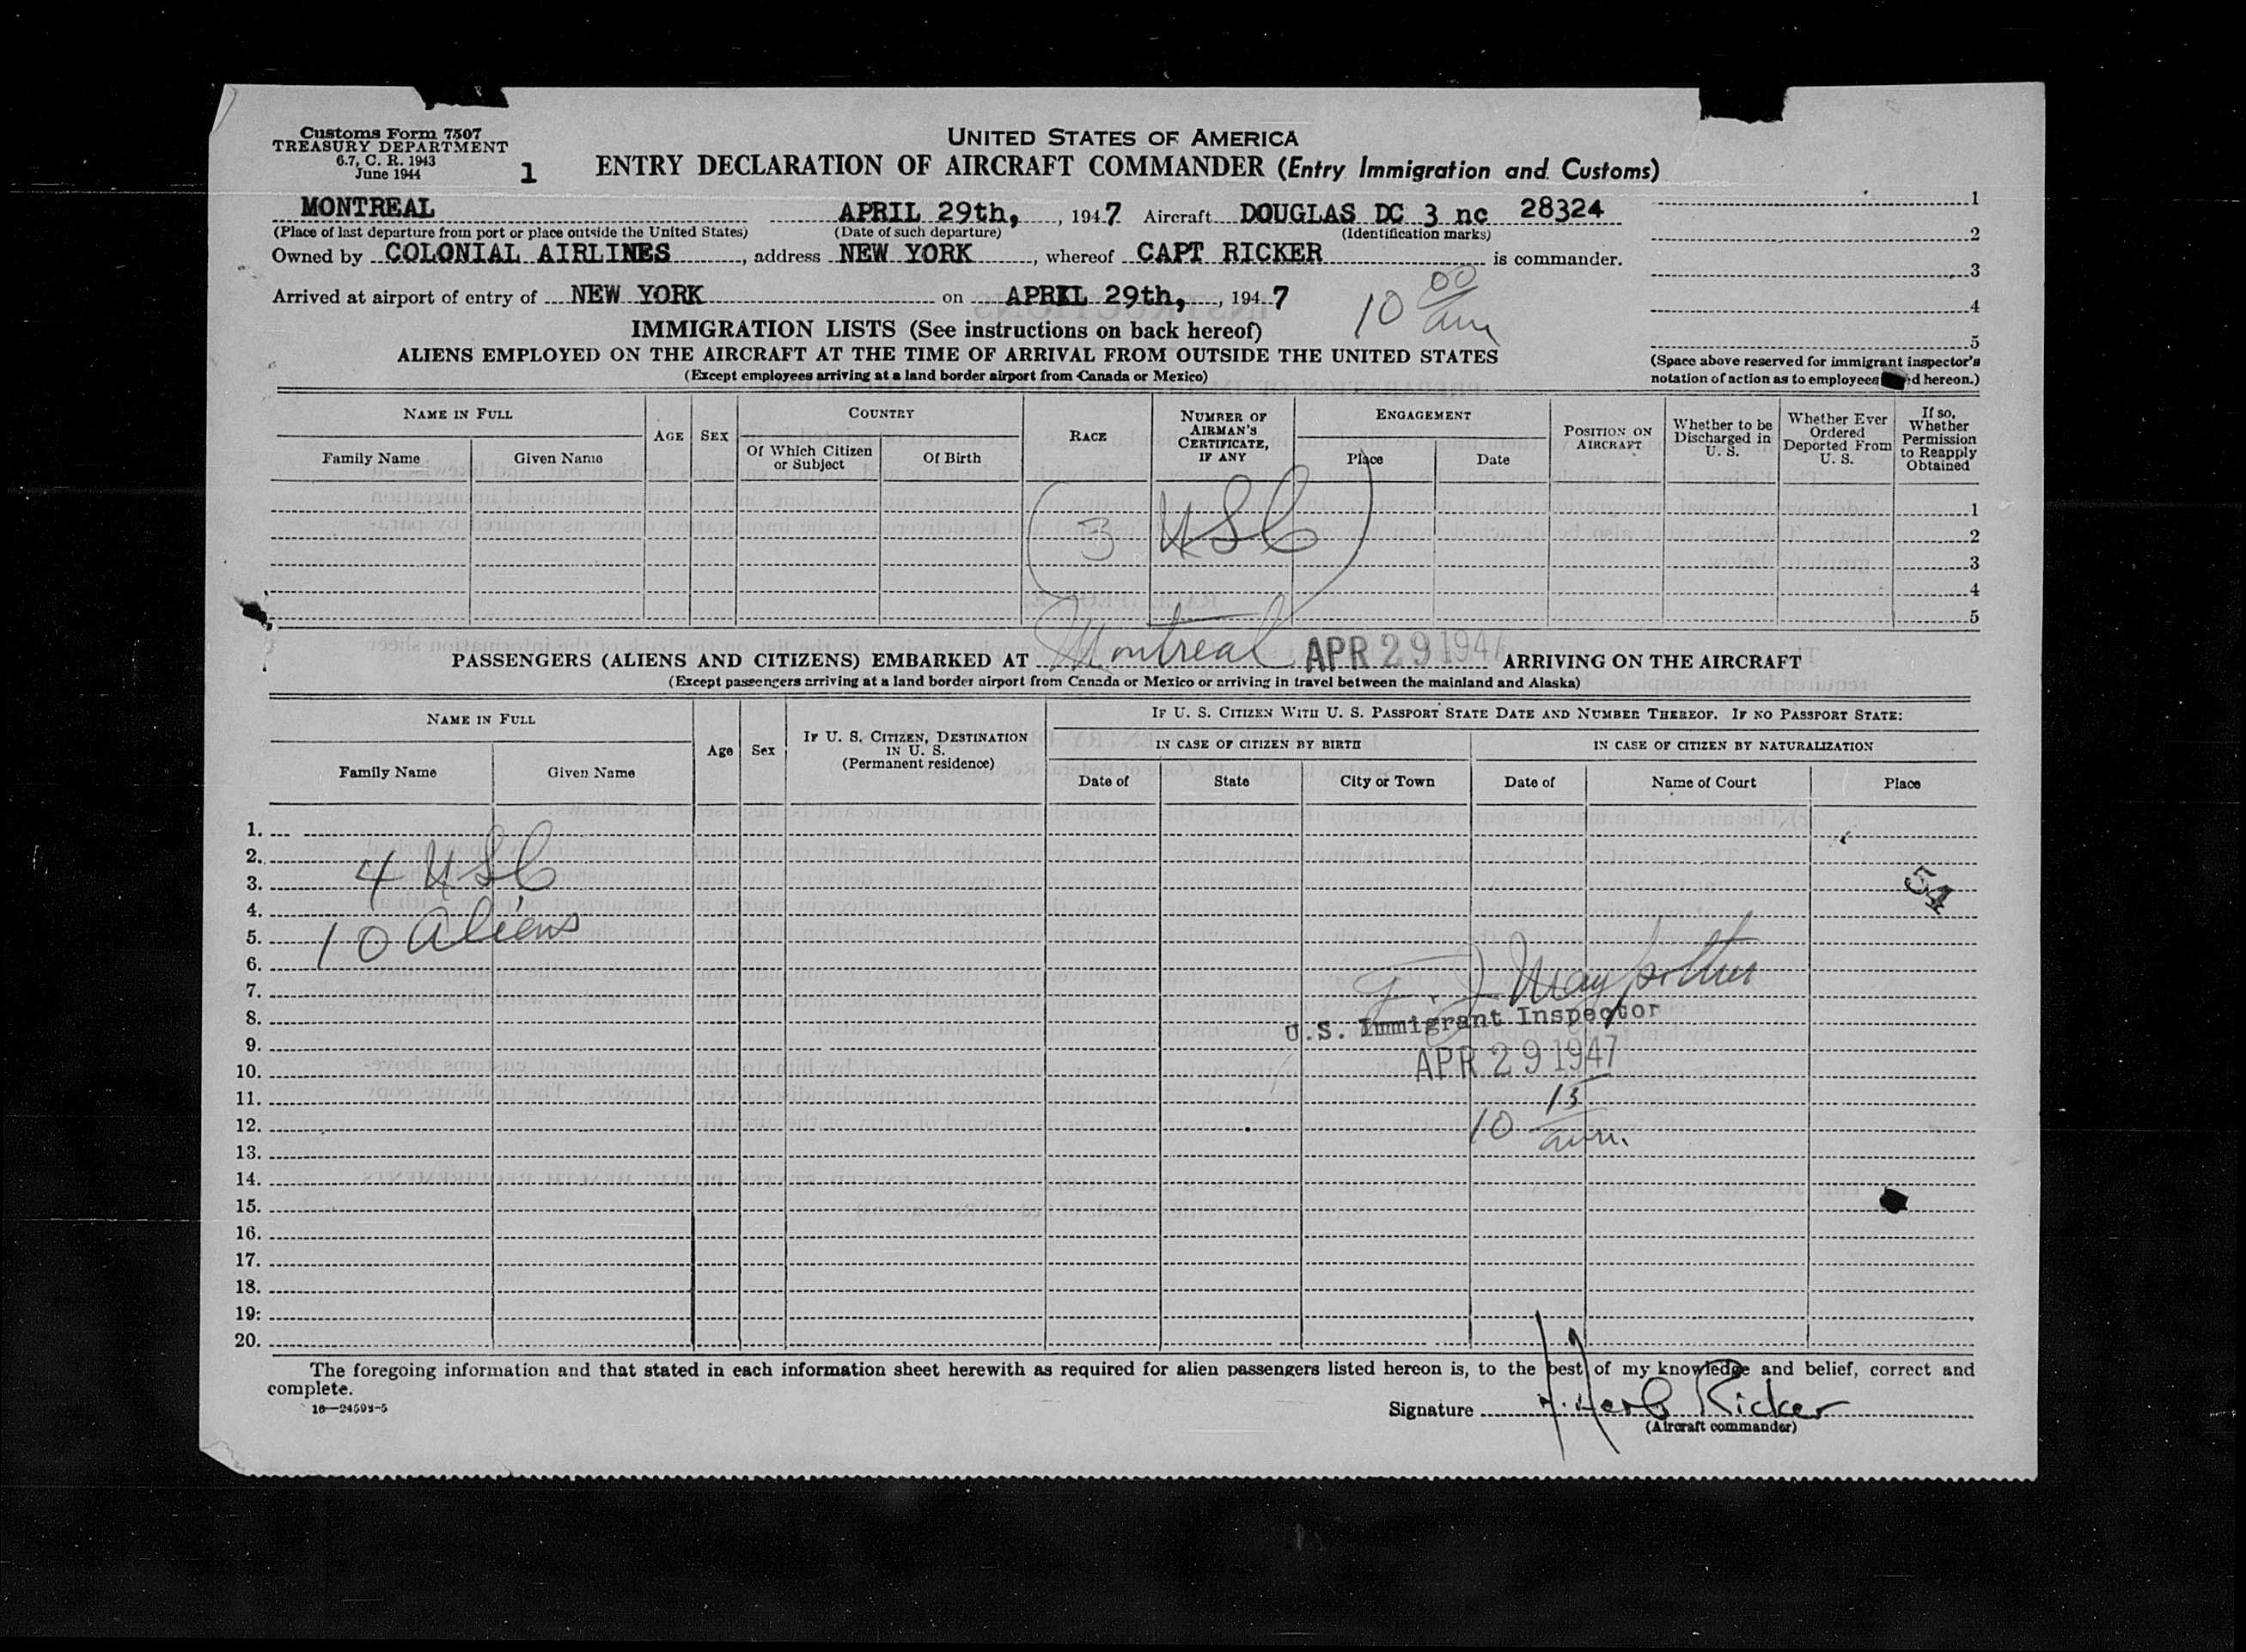 Customs Form 7507
TREASURY DEPARTMENT
6.7, C. R. 1943
June 1944
1
UNITED STATES OF AMERICA
ENTRY DECLARATION OF AIRCRAFT COMMANDER (Entry Immigration and Customs)
MONTREAL APRIL 29th, , 1947 Aircraft DOUGLAS DC 3 nc 28324
(Place of last departure from port or place outside the United States) (Date of such departure) (Identification marks)
Owned by COLONIAL AIRLINES , address NEW YORK , whereof CAPT RICKER is commander.
Arrived at airport of entry of NEW YORK on APRIL 29th, , 1947
10 00 am
1
2
3
4
5
(Space above reserved for immigrant inspector's
notation of action as to employees d hereon.)
IMMIGRATION LISTS (See instructions on back hereof)
ALIENS EMPLOYED ON THE AIRCRAFT AT THE TIME OF ARRIVAL FROM OUTSIDE THE UNITED STATES
(Except employees arriving at a land border airport from Canada or Mexico)
NAME IN FULL
Family Name Given Name
AGE SEX
COUNTRY
Of Which Citizen or Subject
Of Birth
RACE
NUMBER OF AIRMAN'S CERTIFICATE, IF ANY
ENGAGEMENT
Place Date
POSITION ON AIRCRAFT
Whether to be Discharged in U. S.
Whether Ever Ordered Deported From U. S.
If so, Whether Permission to Reapply Obtained
1
2
3
4
5
(3 USC)
PASSENGERS (ALIENS AND CITIZENS) EMBARKED AT Montreal APR 29 1947 ARRIVING ON THE AIRCRAFT
(Except passengers arriving at a land border airport from Canada or Mexico or arriving in travel between the mainland and Alaska)
NAME IN FULL
Family Name Given Name
Age Sex
IF U. S. CITIZEN, DESTINATION IN U. S.
(Permanent residence)
IF U. S. CITIZEN WITH U. S. PASSPORT STATE DATE AND NUMBER THEREOF. IF NO PASSPORT STATE:
IN CASE OF CITIZEN BY BIRTH
Date of State City or Town
IN CASE OF CITIZEN BY NATURALIZATION
Date of Name of Court Place
1.
2.
3. 4 USC
4.
5. 10 Aliens
6.
7.
8.
9.
10.
11.
12.
13.
14.
15.
16.
17.
18.
19.
20.
54
U.S. Immigrant Inspector
APR 29 1947
10 15 am.
The foregoing information and that stated in each information sheet herewith as required for alien passengers listed hereon is, to the best of my knowledge and belief, correct and
complete.
16—24593-5
Signature Herb Ricker
(Aircraft commander)